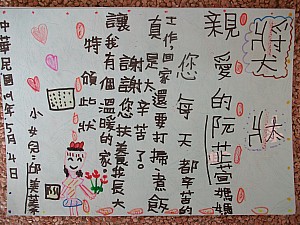 獎狀
親愛的阮媽媽
您每天都辛苦的
工作,回家還要打掃、煮飯
真是太辛苦了。
謝謝您扶養我長大
讓我有個溫暖的家。
特頒此狀
小女兒:邱美蓁
中華民國年5月4日